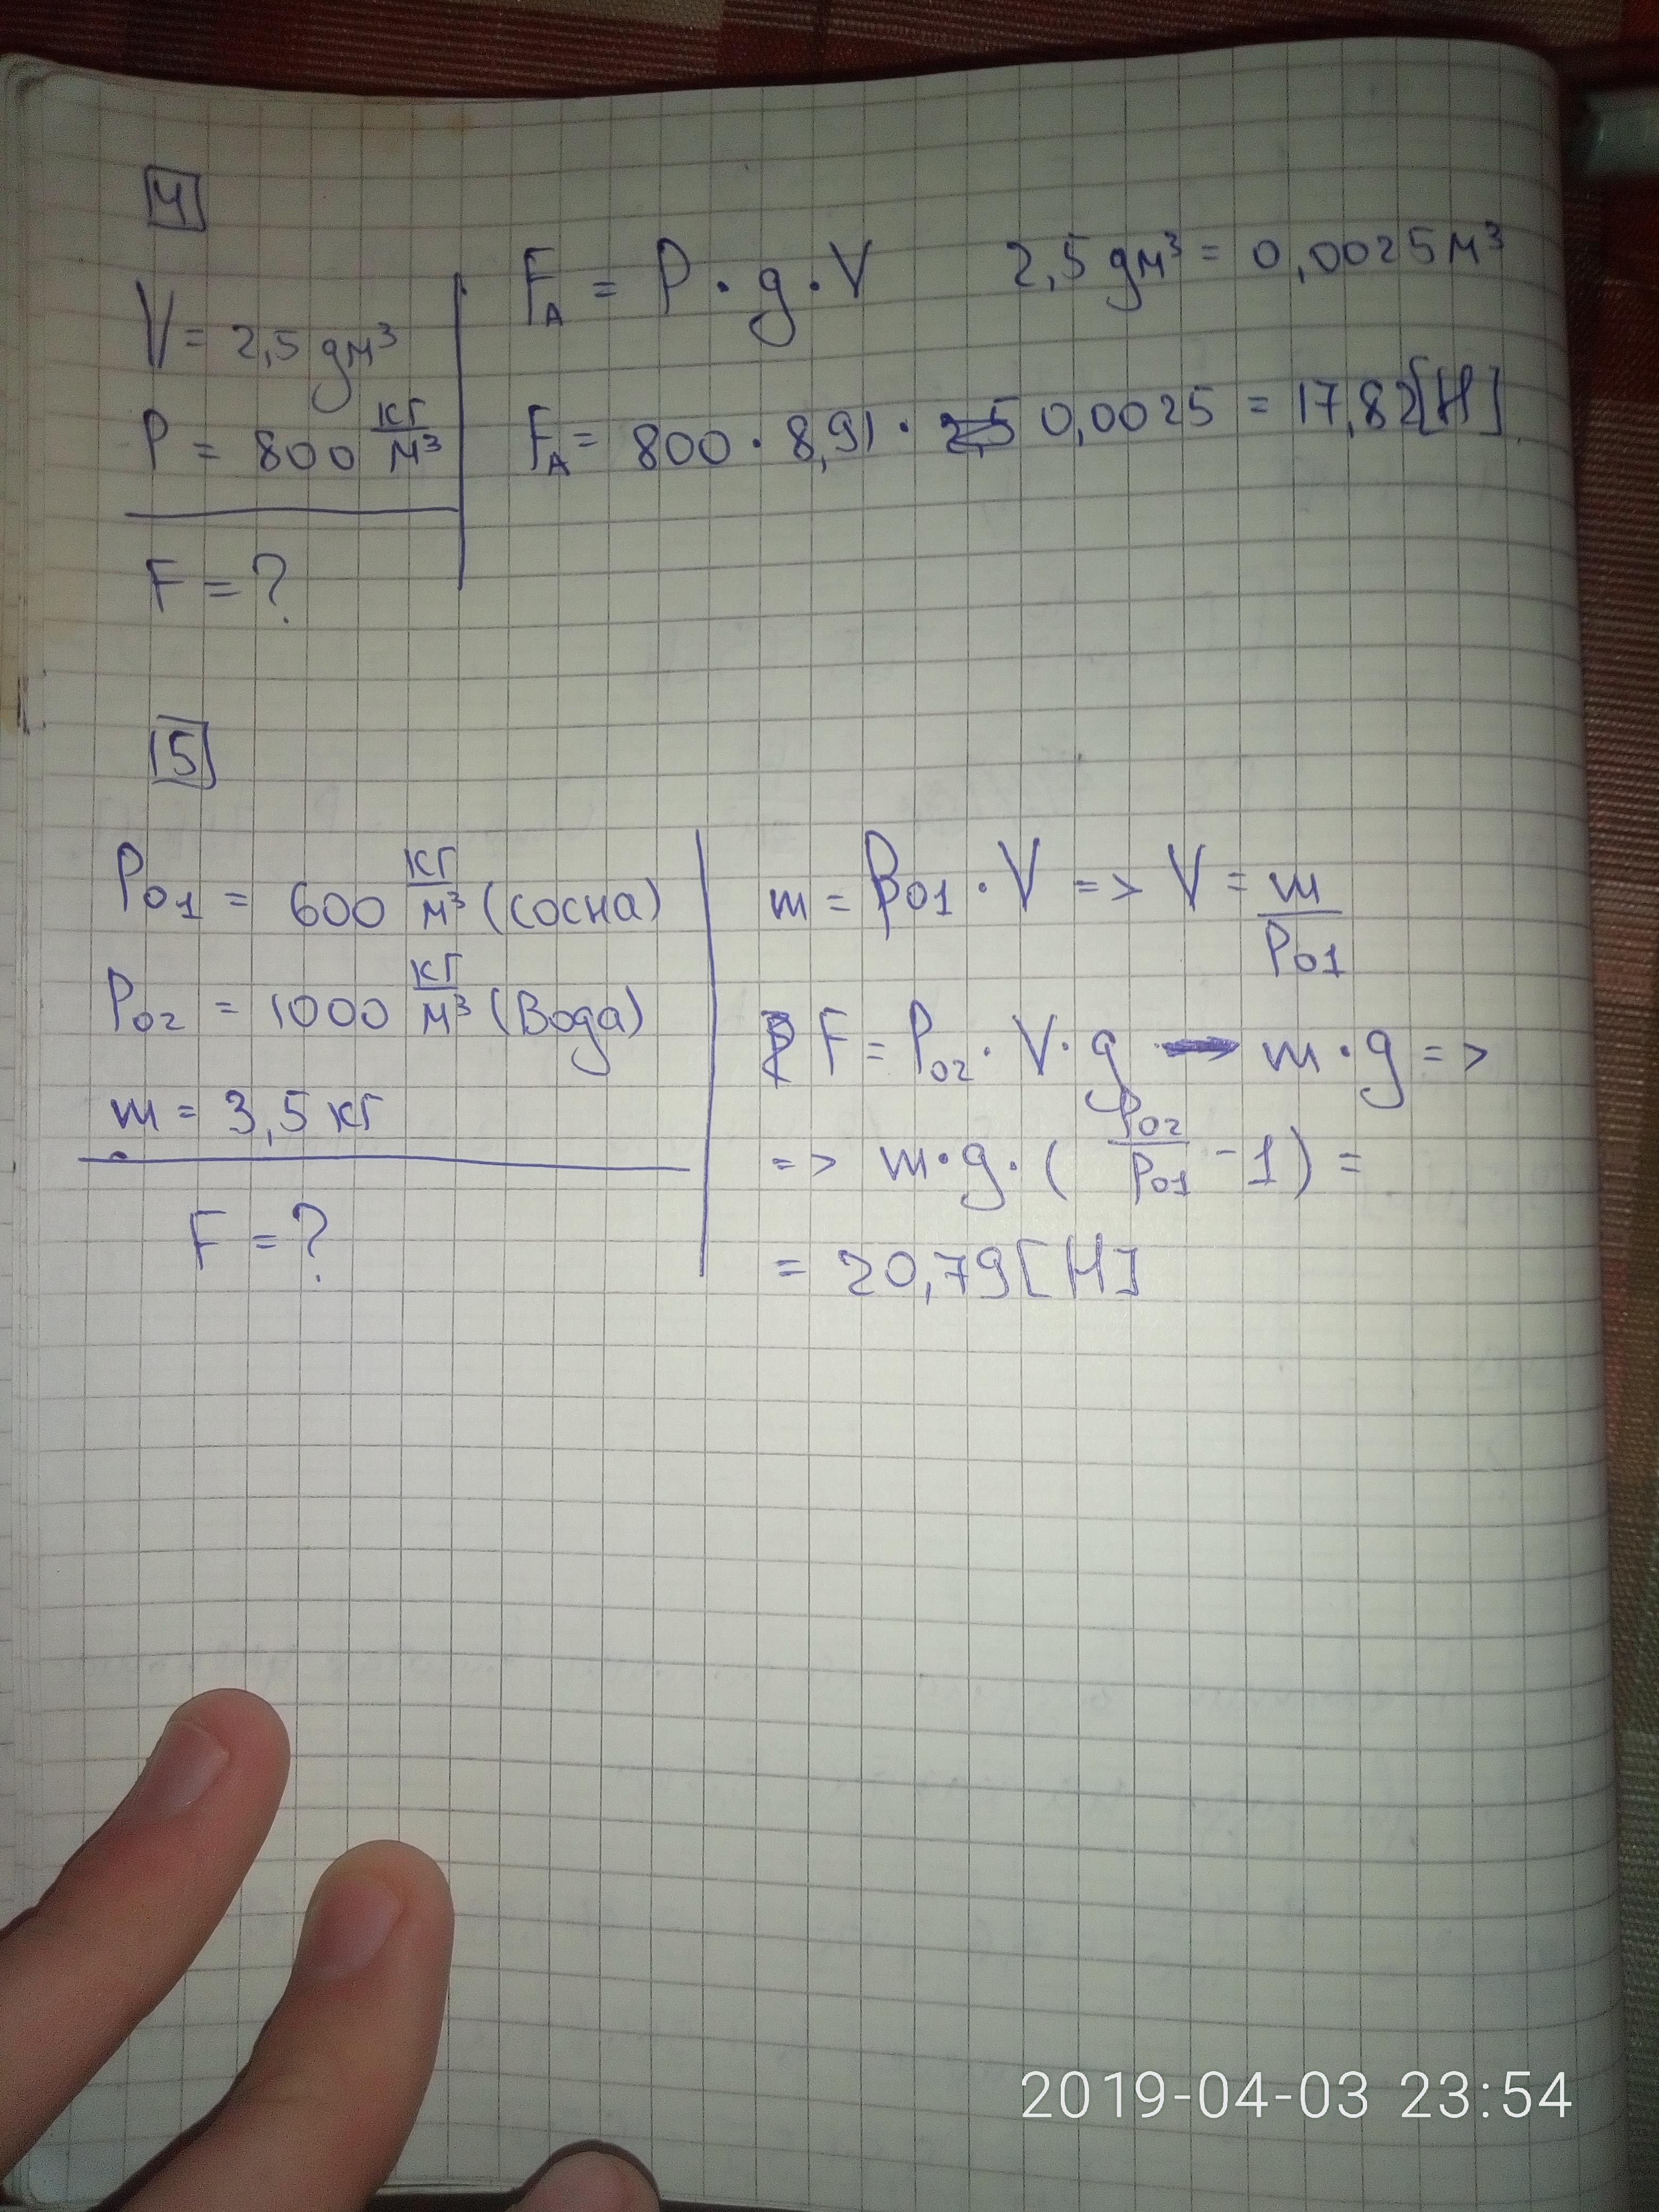 4
V = 2,5 дм³
P = 800 кг/м³
F = ?
F_A = P · g · V 2,5 дм³ = 0,0025 м³
F_A = 800 · 8,91 · 0,0025 = 17,82 [Н]
5
P_01 = 600 кг/м³ (сосна)
P_02 = 1000 кг/м³ (Вода)
m = 3,5 кг
F = ?
m = P_01 · V => V = m/P_01
F = P_02 · V · g — m · g =>
=> m · g · (P_02/P_01 - 1) =
= 20,79 [Н]
2019-04-03 23:54